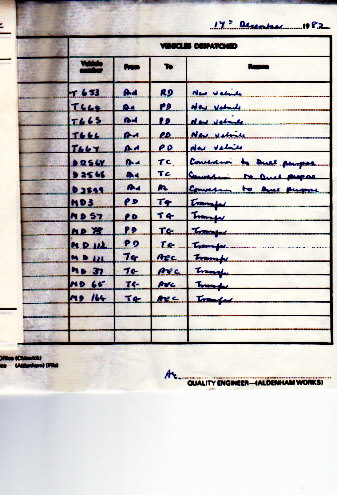 17th December 1982
VEHICLES DESPATCHED
Vehicle number From To Reason
T 653 RD New vehicle
T 660 PD New vehicle
T 665 PD New vehicle
T 666 PD New vehicle
T 667 PD New vehicle
D 2564 TC Conversion to Dual purpose
D 2568 TC Conversion to Dual purpose
D 2599 Conversion to Dual purpose
MD 3 PD Transfer
MD 57 PD Transfer
MD 75 PD Transfer
MD 112 PD Transfer
MD 111 AEC Transfer
MD 37 AEC Transfer
MD 65 AEC Transfer
MD 164 AEC Transfer
Office (Chiswick)
(Aldenham) (File)
QUALITY ENGINEER—(ALDENHAM WORKS)